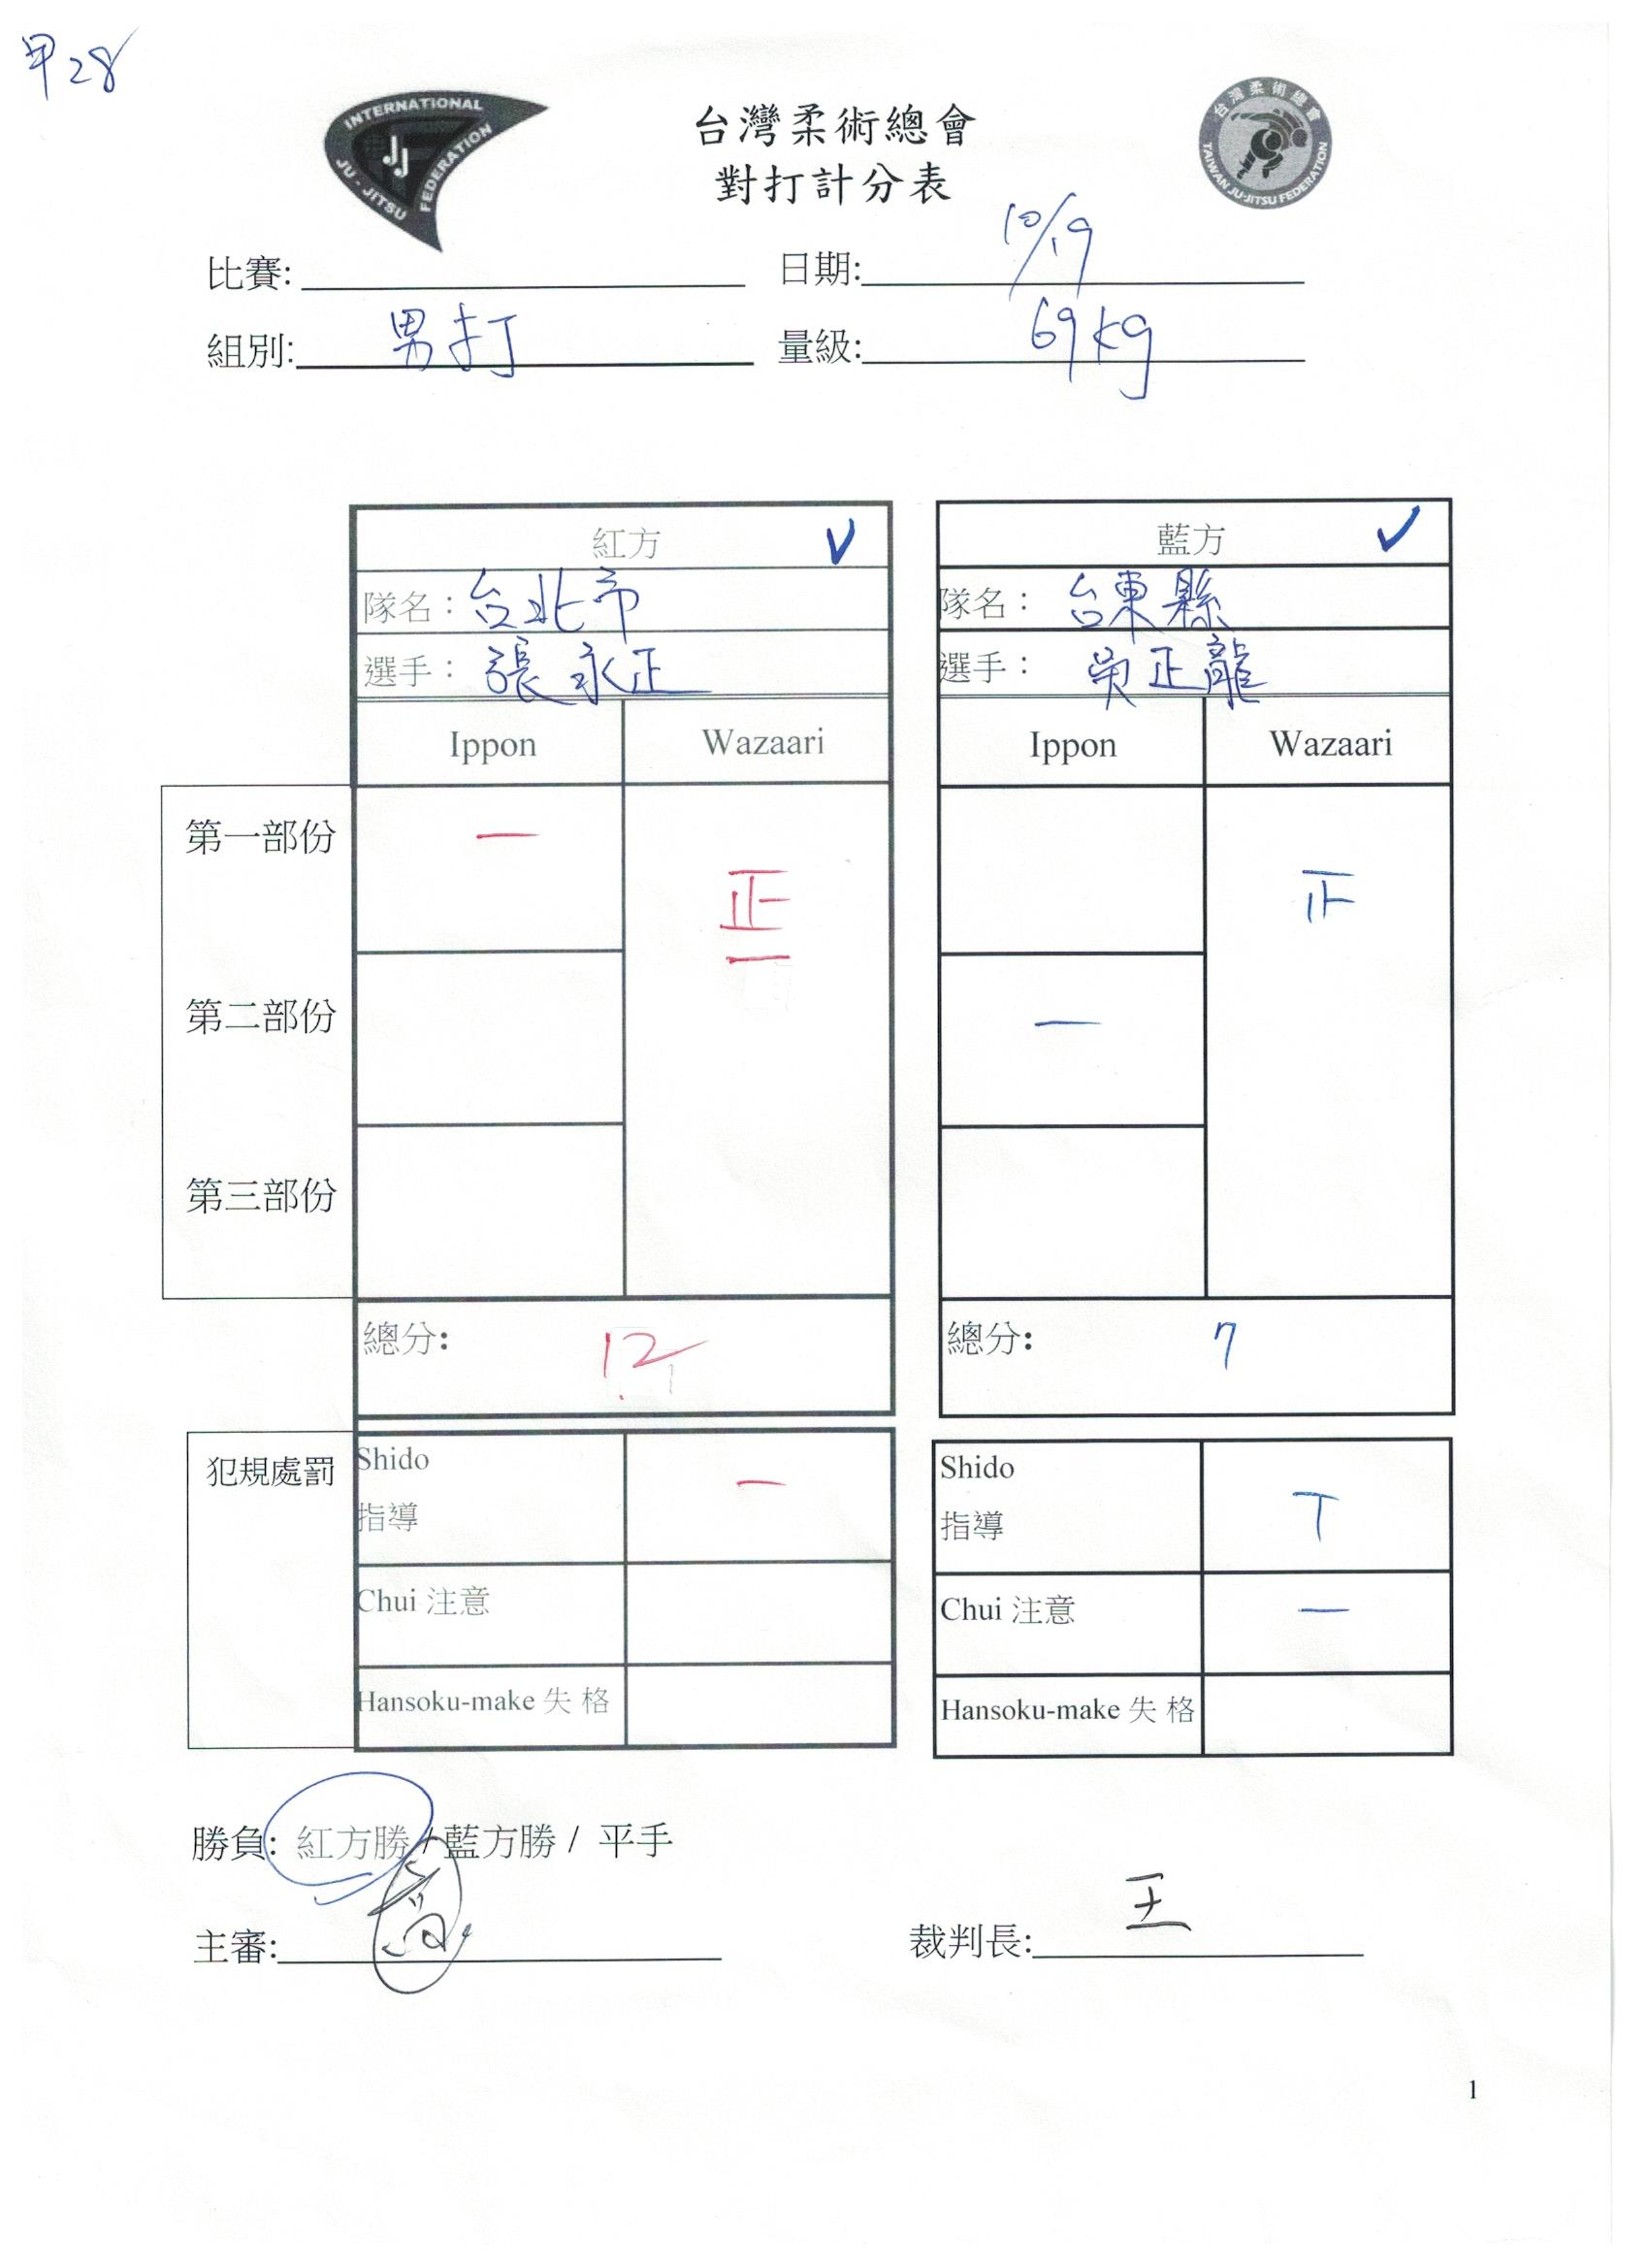 甲28
INTERNATIONAL
JJ
JU-JITSU FEDERATION
台灣柔術總會
TAIWAN JU-JITSU FEDERATION
台灣柔術總會
對打計分表
比賽: 日期: 10/19
組別: 男打 量級: 69kg
紅方 ✓ 藍方 ✓
隊名：台北市 隊名：台東縣
選手：張永正 選手：吳正龍
Ippon Wazaari Ippon Wazaari
第一部份 一 正一 正
第二部份 一
第三部份
總分: 12 總分: 7
犯規處罰 Shido 一 Shido T
指導 指導
Chui 注意 Chui 注意 一
Hansoku-make 失 格 Hansoku-make 失 格
勝負: 紅方勝 / 藍方勝 / 平手
主審: 裁判長: 王
1